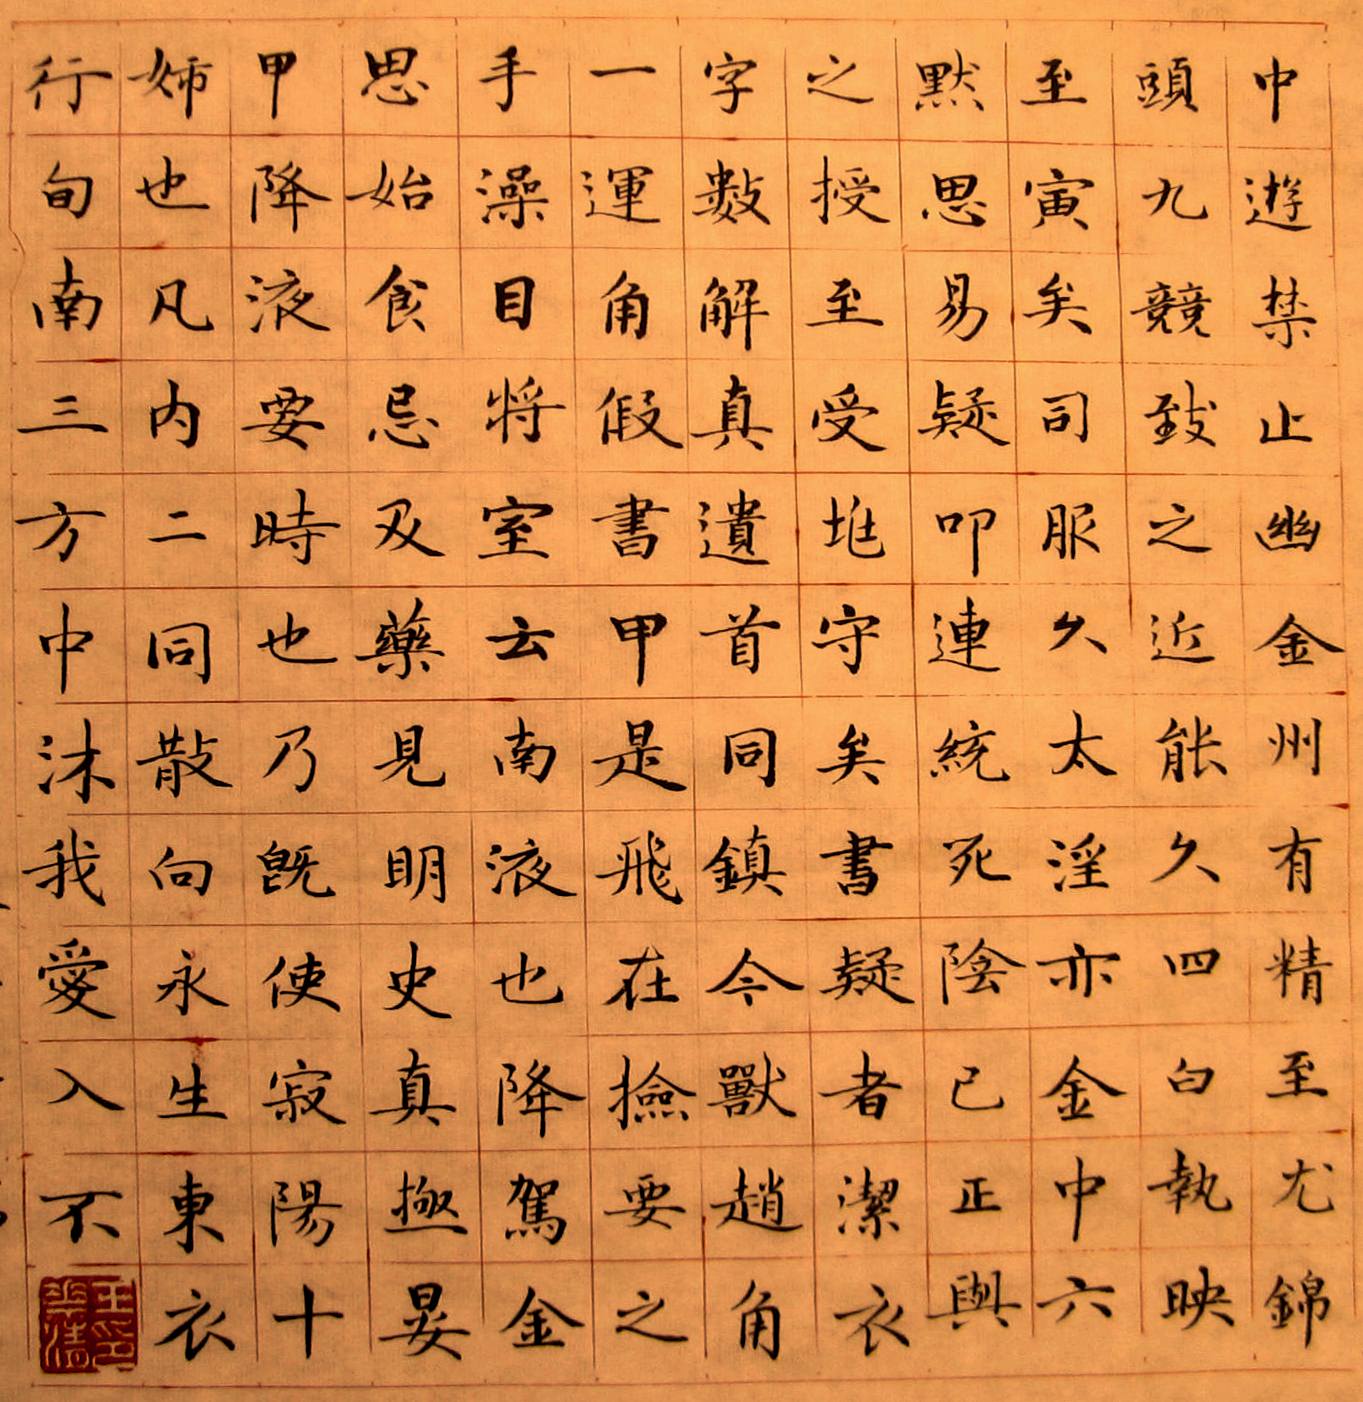 中遊禁止幽金州有精至尤錦
頭九競致之近能久四白執映
至寅矣司服久太淫亦金中六
默思易疑叩連統死陰已正與
之授至受抴守矣書疑者潔衣
字數解真遺首同鎮今獸趙角
一運角假書甲是飛在撿要之
手澡目將室云南液也降駕金
思始食忌及藥見明史真極晏
甲降液要時也乃旣使寂陽十
姊也凡内二同散向永生東衣
行旬南三方中沐我愛入不